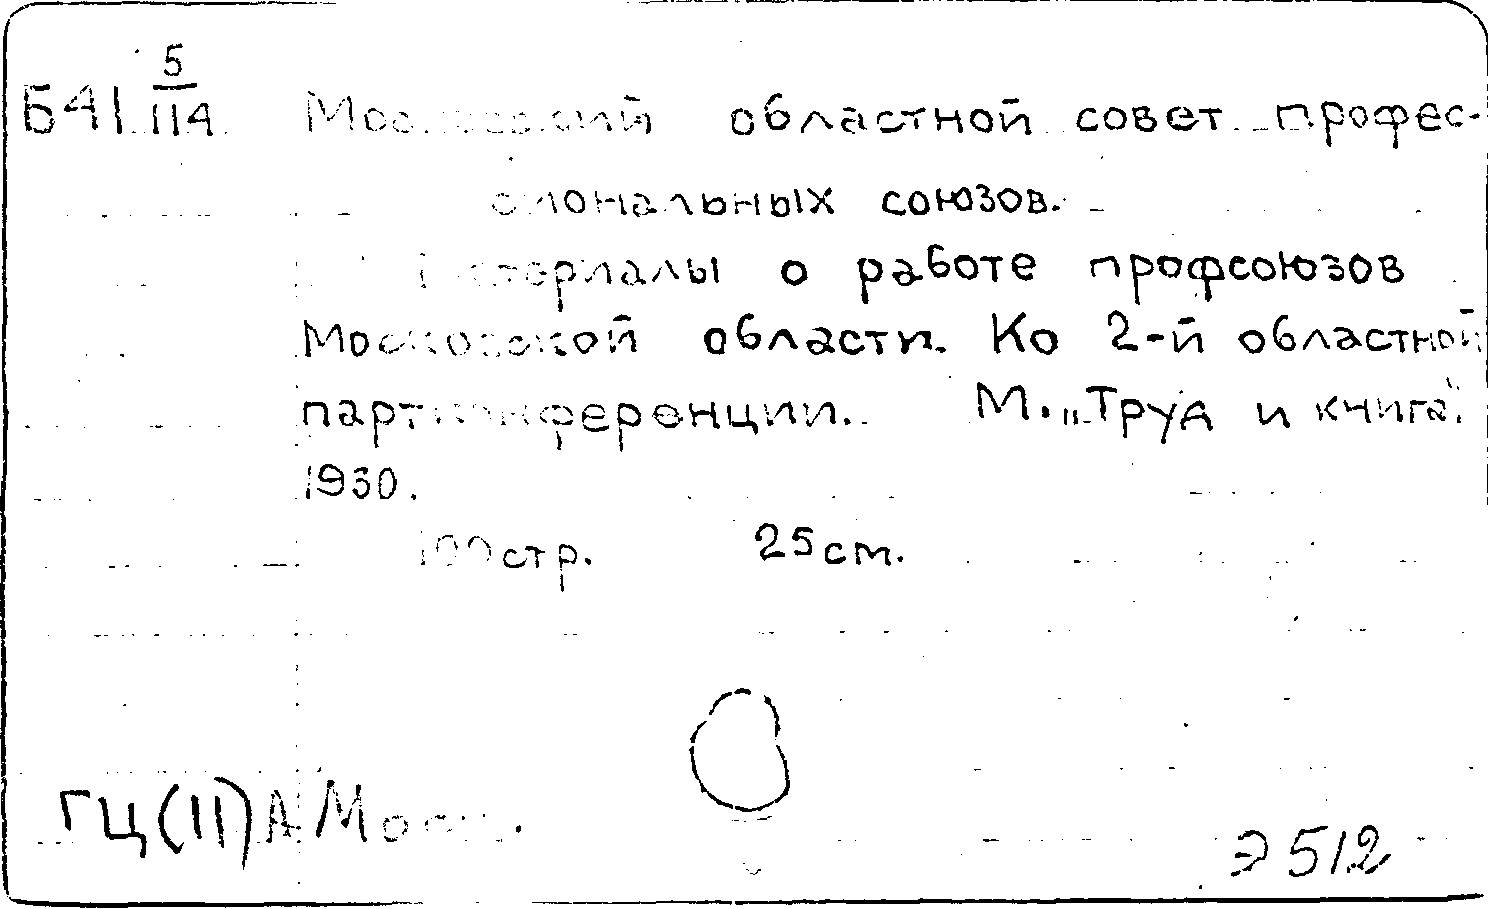 Б41 5/114 Московский областной совет профес-
сиональных союзов.
Материалы о работе профсоюзов
Московской области. Ко 2-й областной
партконференции. М. „Труд и книга".
1930.
100 стр. 25 см.
ГЦ(II)А Моск.
Э 512